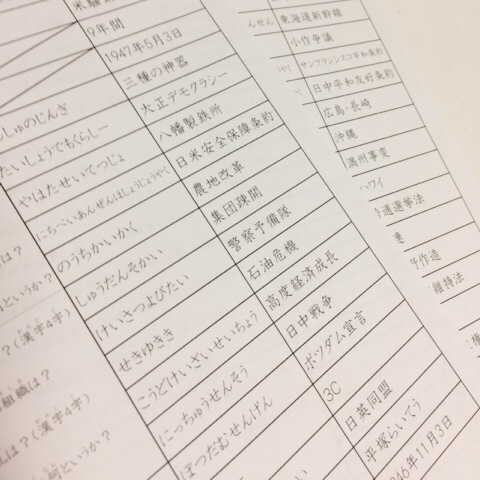 米騒
9年間
1947年5月3日
三種の神器
大正デモクラシー
八幡製鉄所
日米安全保障条約
農地改革
集団疎開
警察予備隊
石油危機
高度経済成長
日中戦争
ポツダム宣言
3C
日英同盟
平塚らいてう
946年11月3日
しゅのじんぎ
たいしょうでもくらしー
やはたせいてつじょ
にちべいあんぜんほしょうじょうやく
のうちかいかく
しゅうだんそかい
けいさつよびたい
せきゆきき
こうどけいざいせいちょう
にっちゅうせんそう
ぽつだむせんげん
は？
何というか？
？(漢字4字)
組織は？
は？(漢字4字)
何というか？
んせん
東海道新幹線
小作争議
サンフランシスコ平和条約
日中平和友好条約
広島・長崎
沖縄
満州事変
ハワイ
通選挙法
連
予作造
維持法